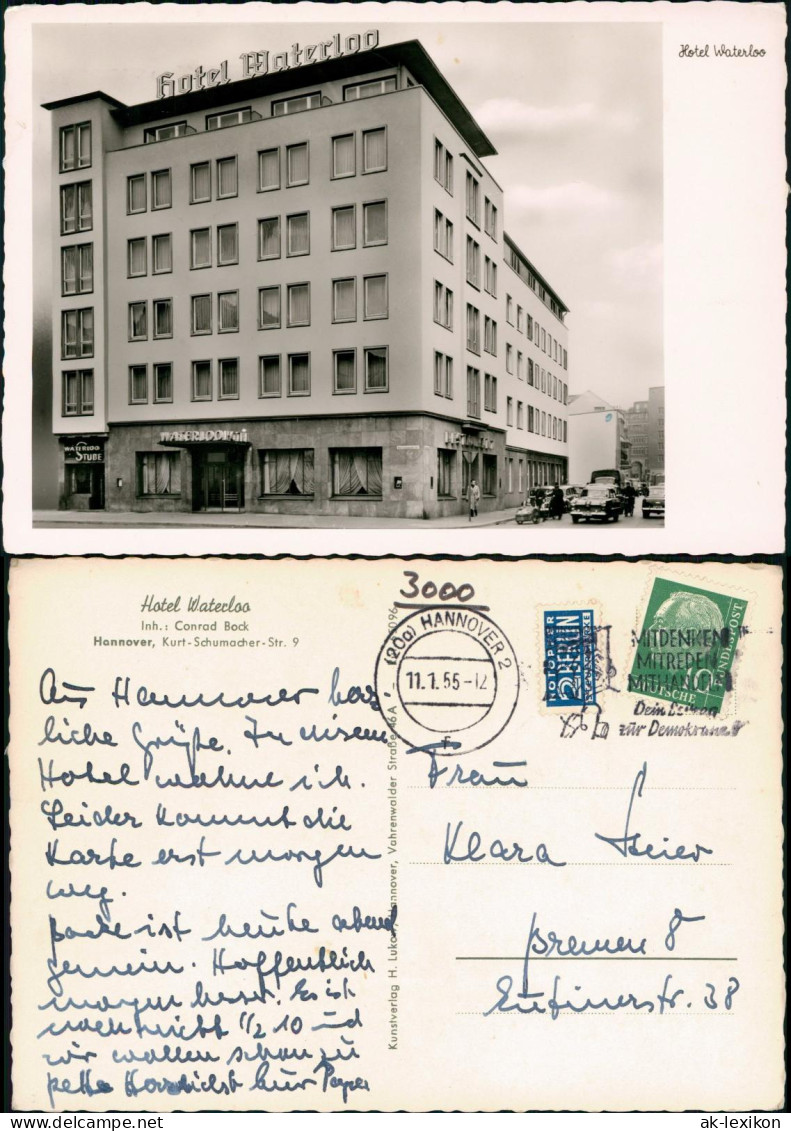 Hotel Waterloo
Hotel Waterloo
WATERLOO
STUBE
Hotel Waterloo
Inh.: Conrad Bock
Hannover, Kurt-Schumacher-Str. 9
3000
(20a) HANNOVER 2
11.1.55-12
NOTOPFER
2 BERLIN
STEUERMARKE
DEUTSCHE BUNDESPOST
MITDENKEN
MITREDEN
MITHANDELN
Dein
zur Demokratie
Aus Hannover herz
liche Grüße. In diesem
Hotel wohne ich.
Leider kommt die
Karte erst morgen
weg.
ist heute abend
gemein. Hoffentlich
morgen besser. Es ist
noch nicht 1/2 10 und
wir wollen schon zu
Bette Herzlichst Eur Papa
Frau
Klara Meier
Bremen 8
Eutinerstr. 38
Kunstverlag H. Lukow, Hannover, Vahrenwalder Straße 46 A
ak-lexikon